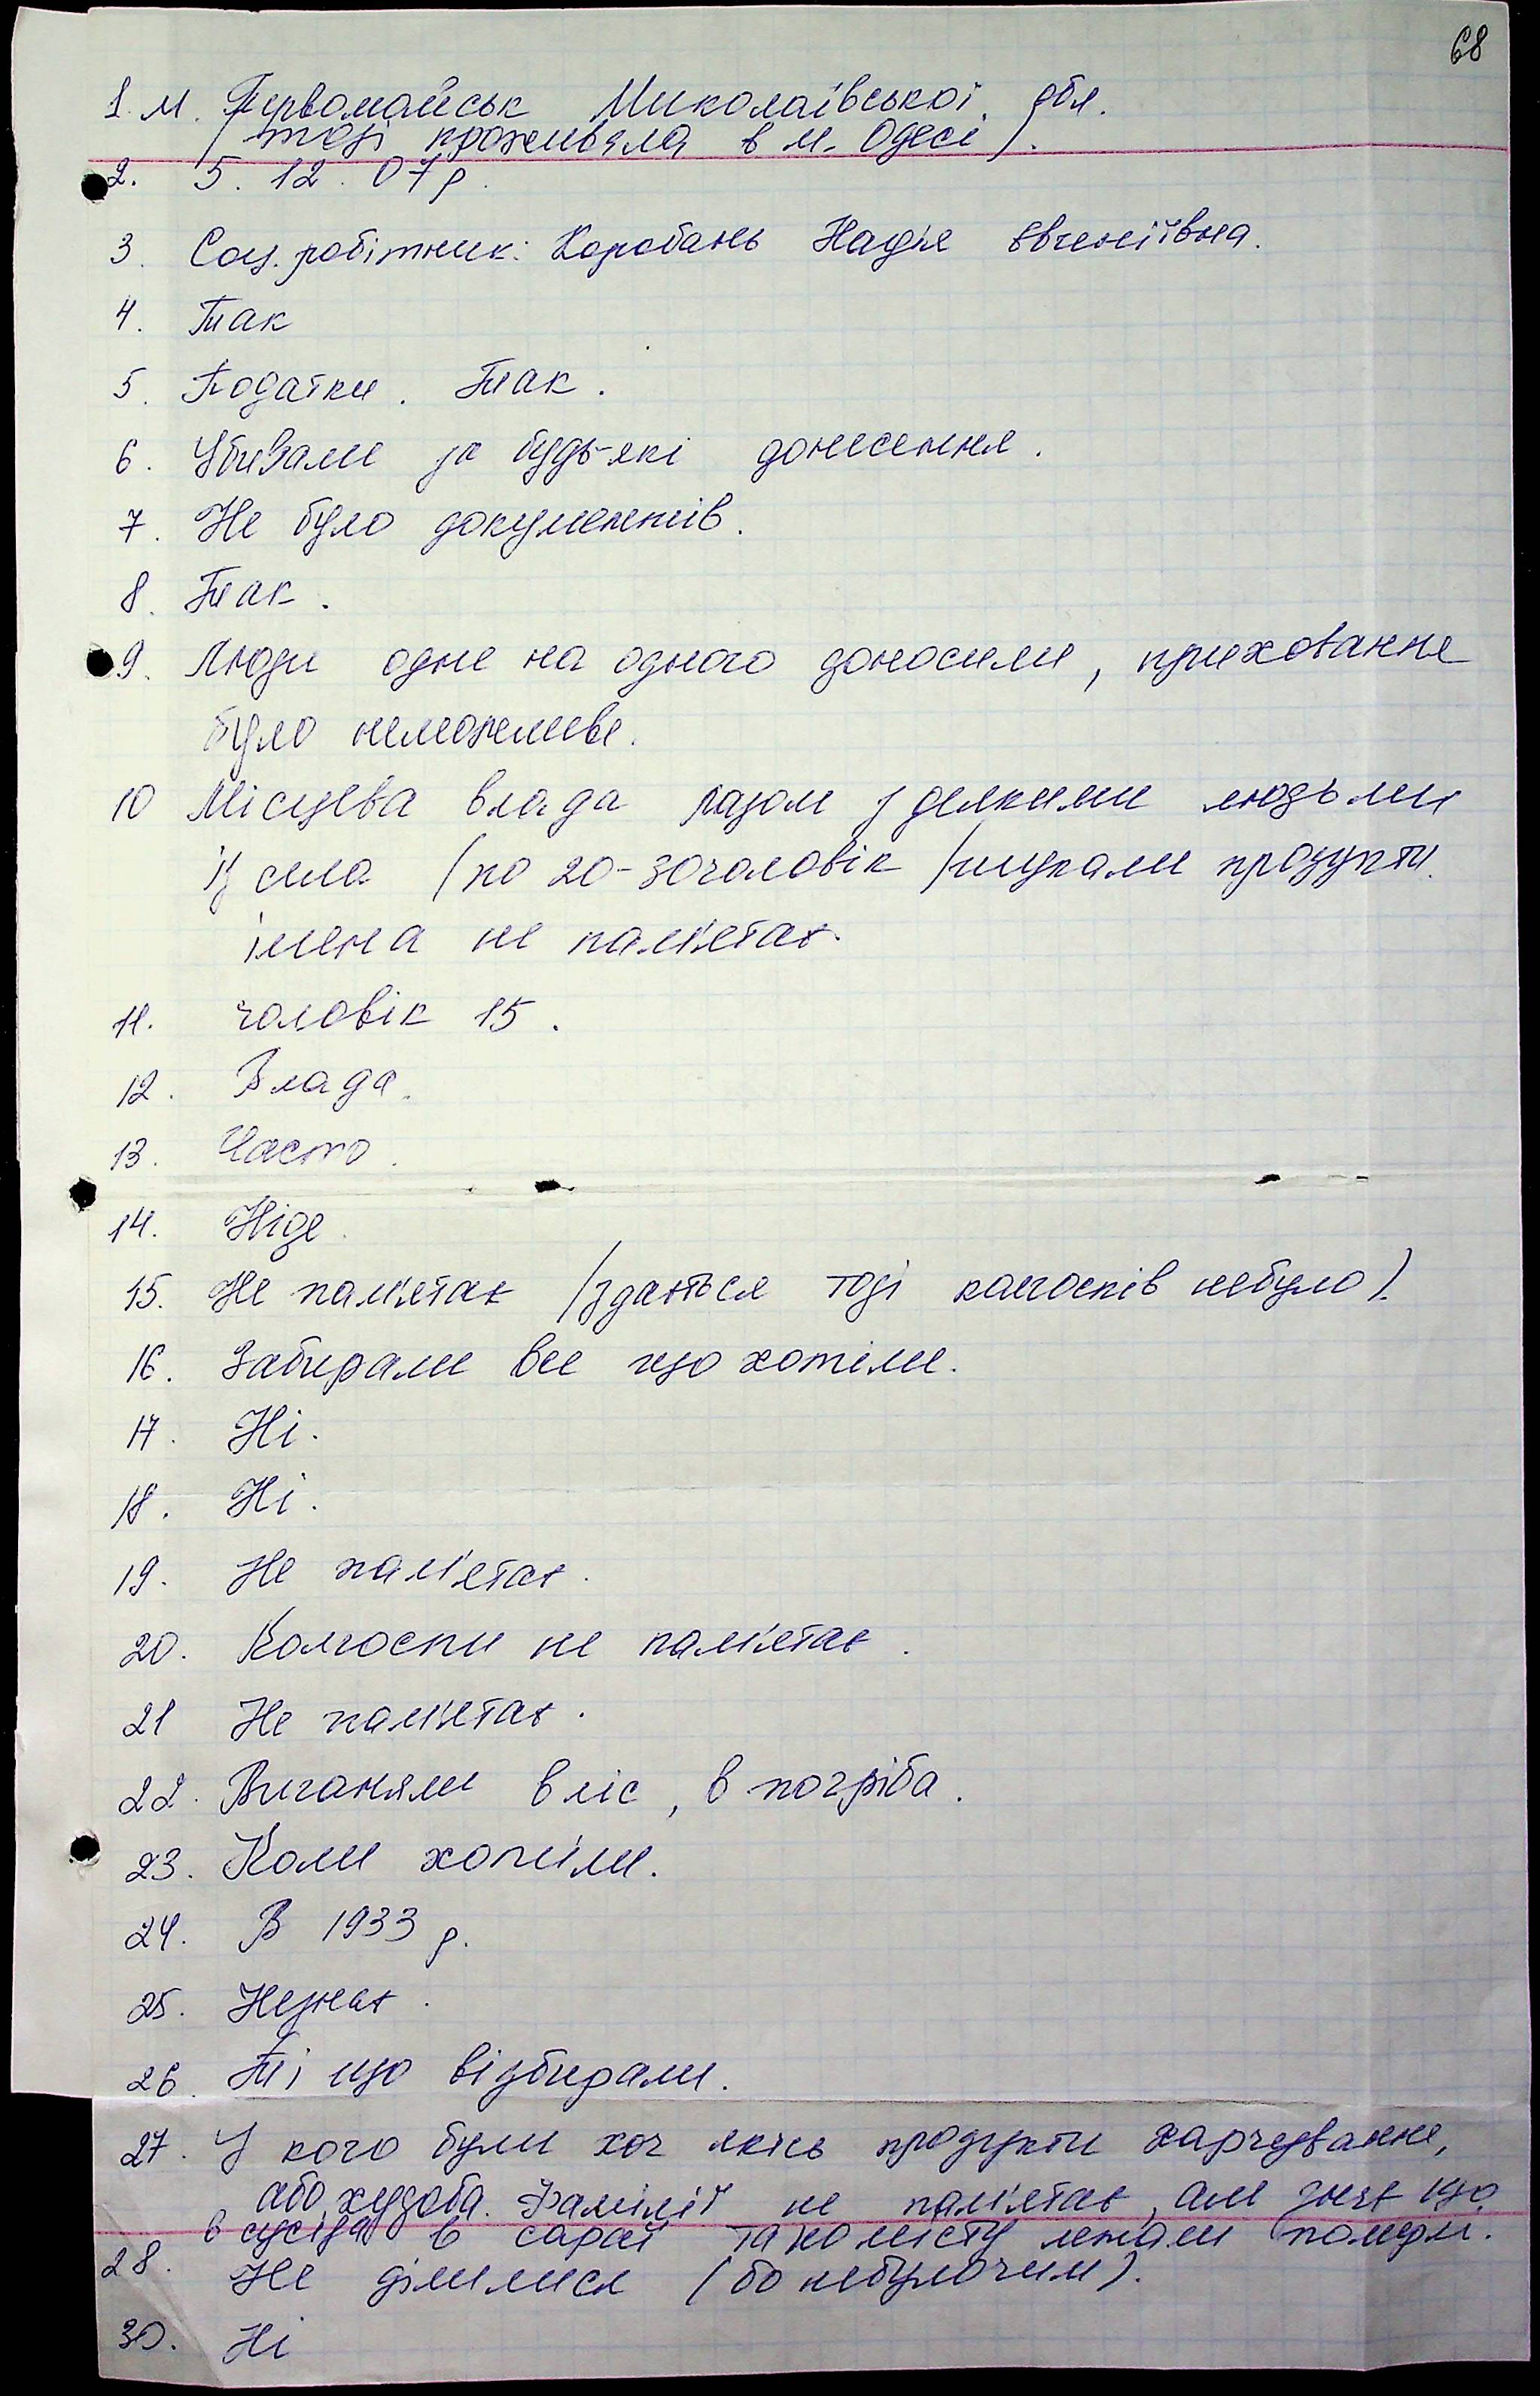 68
1. м. Первомайськ Миколаївської обл.
(тоді проживала в м. Одесі).
2. 5. 12. 07 р.
3. Соц. робітник: Коробань Надія Євгеніївна.
4. Так
5. Податки. Так.
6. Убивали за будь-які донесення.
7. Не було документів.
8. Так.
9. Люди одне на одного доносили, приховання
було неможливе.
10 Місцева влада разом з деякими людьми
із села (по 20-30 чоловік) шукали продукти.
імена не пам'ятає.
11. чоловік 15.
12. Влада.
13. Часто.
14. Ніде.
15. Не пам'ятає (здається тоді колгоспів небуло).
16. Забирали все що хотіли.
17. Ні.
18. Ні.
19. Не пам'ятає.
20. Колгоспи не пам'ятає.
21 Не пам'ятає.
22. Виганяли в ліс, в погріба.
23. Коли хотіли.
24. В 1933 р.
25. Незнає.
26. Ті що відбирали.
27. У кого були хоч якісь продукти харчування,
або худоба. Фамілії не пам'ятає, але знає що
в сусідів в сараї та по місту лежали померлі.
28. Не ділилися (бо небулочим).
30. Ні